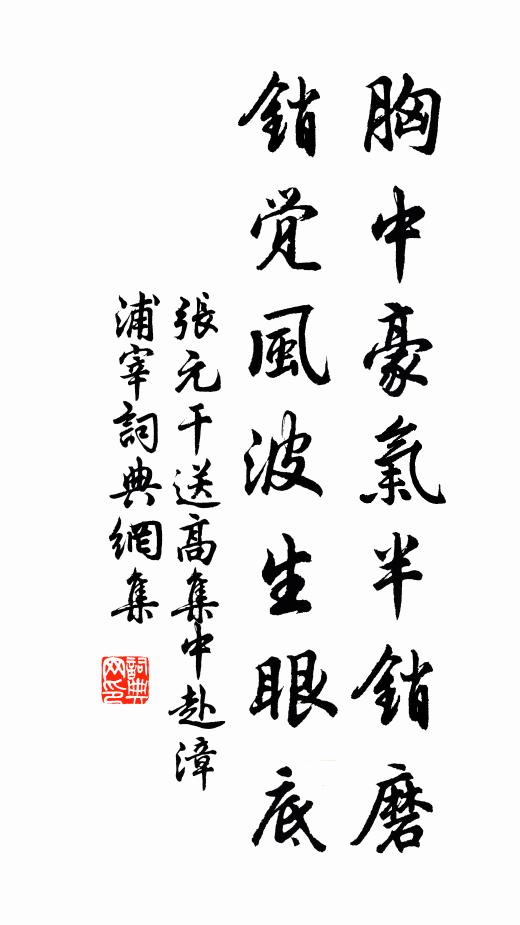 胸中豪氣半銷磨
銷觉風波生眼底
張元干送高集中赴漳
浦宰詞典網集
詞典網印